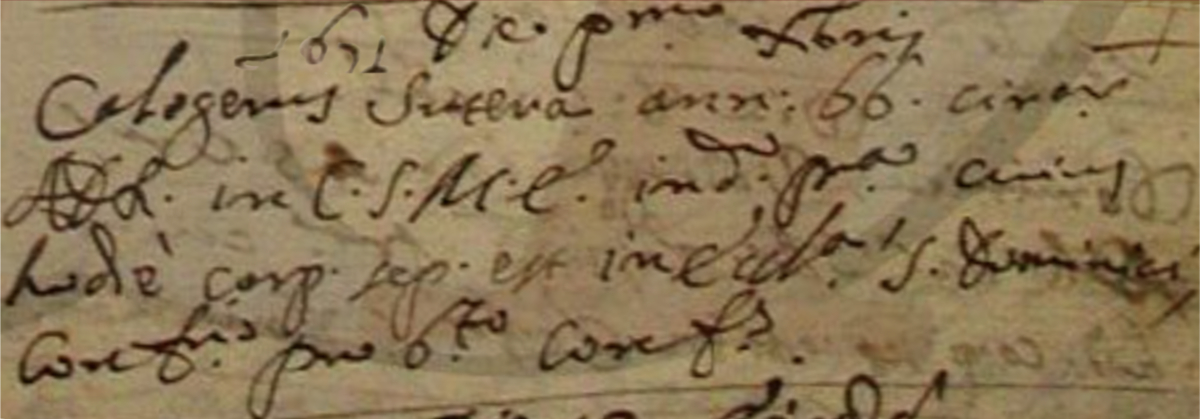 1671 Die pmo Xbris
Calogerus Sutera ann: 66. circr
ADR. in C. S. M. E. in d. pria cuius
hodiè corp. sep. est in Eccla S. Dominici
Conf. pro 6.to Conf.